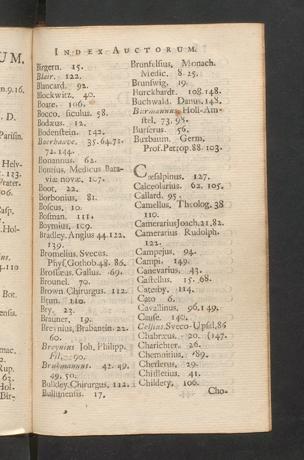 INDEX AUCTORUM.
Birgern. 15.
Blair. 122.
Blancard. 92.
Blockwitz, 40.
Boate. 106.
Bocco, siculus. 58.
Bodæus. 12.
Bodenstein. 142.
Boerhaave. 35. 64. 71.
72. 144.
Bonannus. 62.
Bontius, Medicus Bata-
viæ novæ, 107.
Boot. 22.
Borbonius, 81.
Boscus, 10.
Bosman. 111.
Boymius, 109.
Bradley. Anglus 44. 122.
139.
Bromelius. Svecus.
Phys. Gothob. 48. 86.
Brossæus. Gallus. 69.
Brounel. 70.
Brown. Chirurgus. 112.
Brun. 140.
Bry. 23.
Brauner, 19.
Breynius, Brabantin. 22.
60.
Breynius Joh. Philipp.
Fil. 90.
Brukmannus. 42. 49.
49. 50.
Bulkley. Chirurgus, 112.
17.
Brunfelsius, Monach.
Medic. 8. 25.
Brunswig. 19.
Burckhardt. 108. 148.
Buchwald. Danus. 148.
Burmannus. Holl-Am-
stel. 73. 98.
Burserus. 56.
Buxbaum, Germ,
Prof. Petrop. 88. 103.
Cæsalpinus. 127.
Calceolarius. 62. 105.
Callard. 95.
Camellus, Theolog. 38
110.
Camerarius Joach. 21. 82.
Camerarius Rudolph.
122.
Campejus. 94.
Campi. 149.
Canevarius. 43.
Castellus. 15. 68.
Catesby. 114.
Cato 6.
Cavallinus. 96. 149.
Cause. 140.
Celsius. Sveco-Upsal. 86
Chabræus. 20. (147.
Charichter. 26.
Chemnitius. 89.
Cheslerus. 29.
Chifletius. 41.
Childery. 106.
Cho-